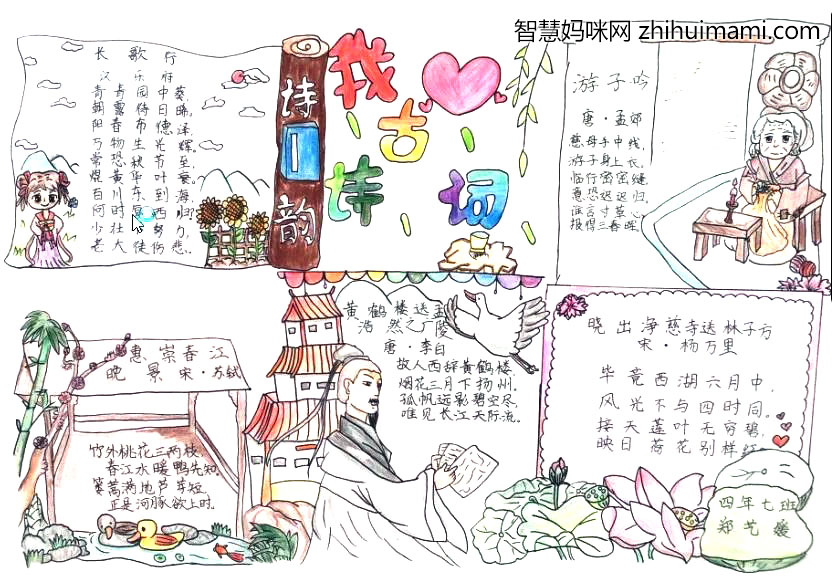 智慧妈咪网 zhihuimami.com
长歌行
汉乐府
青青园中葵
朝露待日晞,
阳春布德泽
万物生光辉,
常恐秋节至
焜黄华叶衰。
百川东到海,
何时 西归?
少壮 努力,
老大徒伤悲。
诗
韵
我
古
诗
词
游子吟
唐·孟郊
慈母手中线,
游子身上衣。
临行密密缝
意恐迟迟归。
谁言寸草心
报得三春晖。
惠崇春江
晚景 宋·苏轼
竹外桃花三两枝
春江水暖鸭先知。
蒌蒿满地芦芽短
正是河豚欲上时。
黄鹤楼送孟
浩然之广陵
唐·李白
故人西辞黄鹤楼
烟花三月下扬州。
孤帆远影碧空尽
唯见长江天际流。
晓出净慈寺送林子方
宋·杨万里
毕竟西湖六月中,
风光不与四时同。
接天莲叶无穷碧,
映日荷花别样红
四年七班
郑艺媛